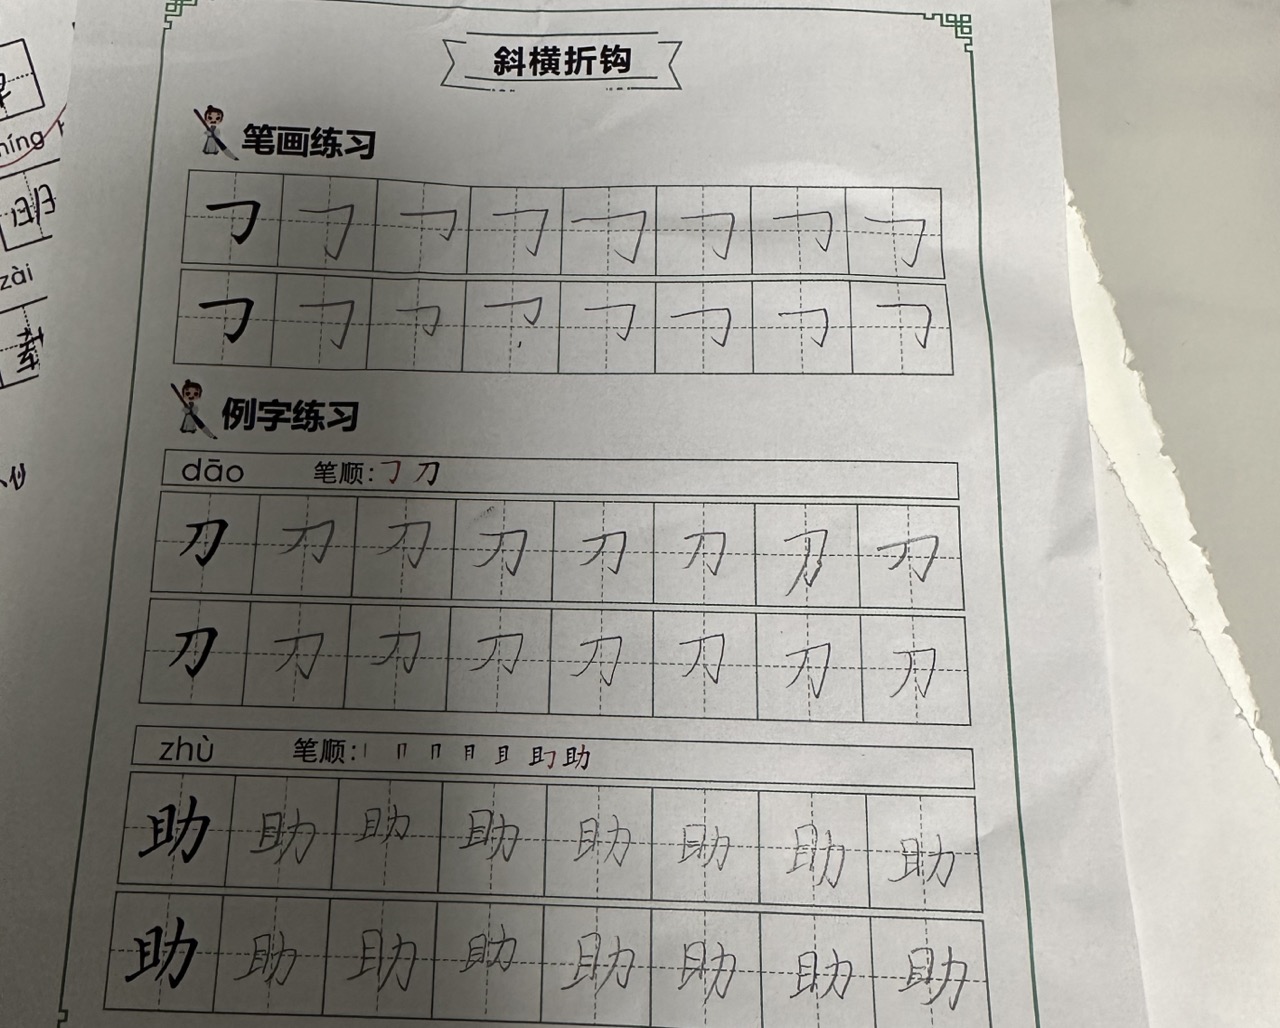 斜横折钩
笔画练习
㇆ ㇆ ㇆ ㇆ ㇆ ㇆ ㇆ ㇆
㇆ ㇆ ㇆ ㇆ ㇆ ㇆ ㇆ ㇆
例字练习
dāo 笔顺: ㇆ 刀
刀 刀 刀 刀 刀 刀 刀 刀
刀 刀 刀 刀 刀 刀 刀 刀
zhù 笔顺: 助
助 助 助 助 助 助 助 助
助 助 助 助 助 助 助 助
míng
明
zài
载